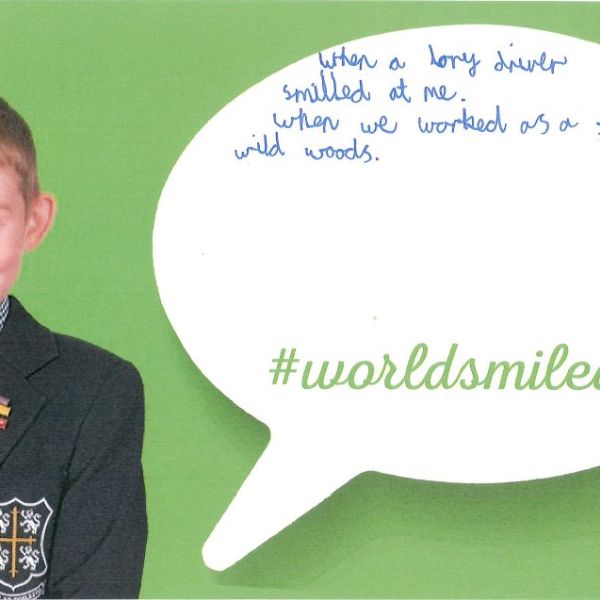 when a lory driver
smilled at me.
when we worked as a
wild woods.
#worldsmiled